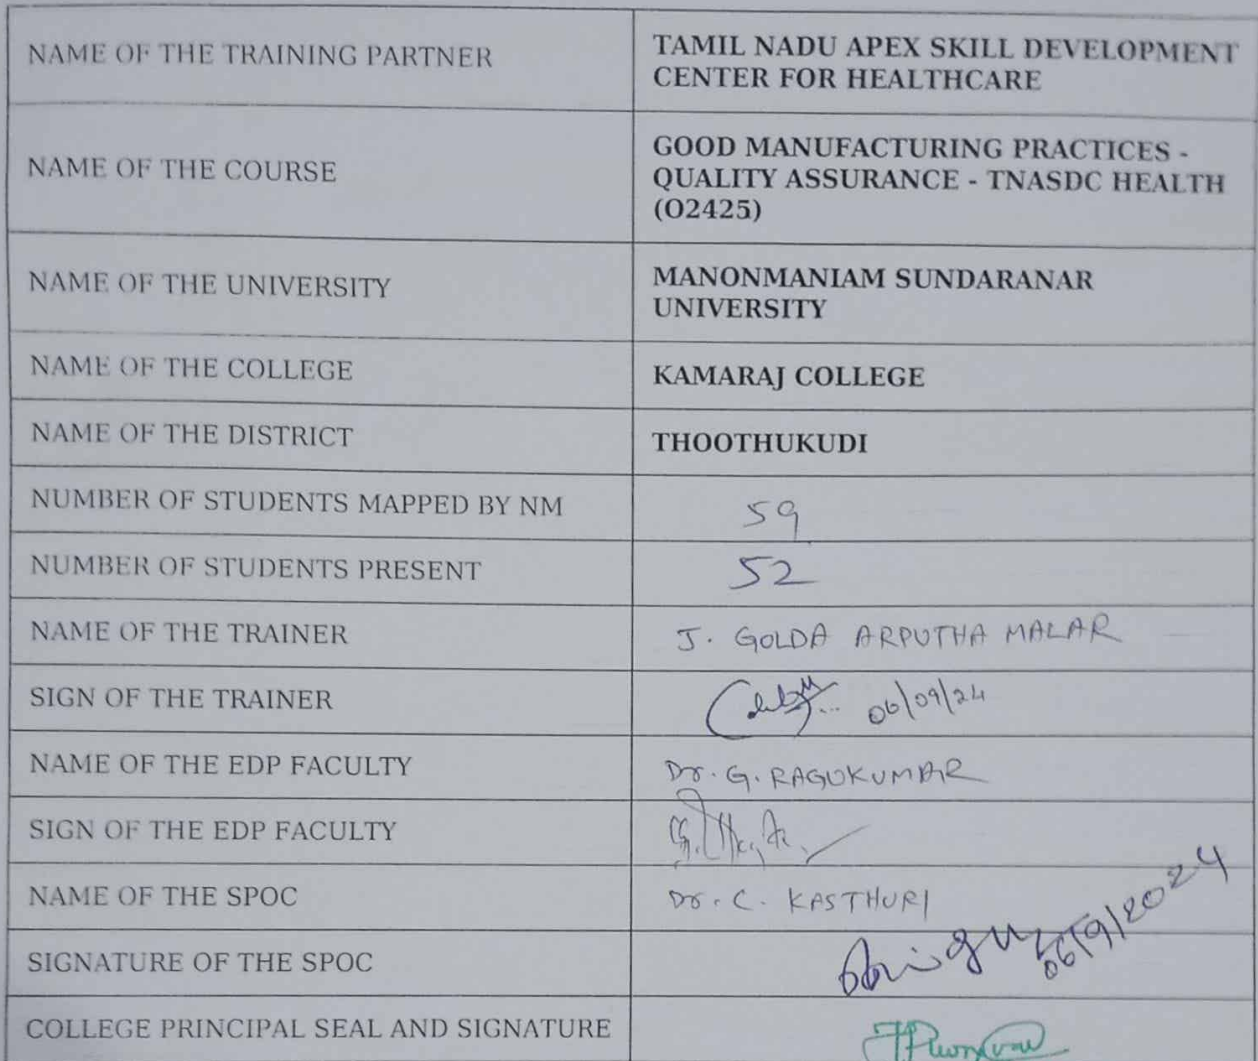 NAME OF THE TRAINING PARTNER
TAMIL NADU APEX SKILL DEVELOPMENT
CENTER FOR HEALTHCARE
NAME OF THE COURSE
GOOD MANUFACTURING PRACTICES -
QUALITY ASSURANCE - TNASDC HEALTH
(O2425)
NAME OF THE UNIVERSITY
MANONMANIAM SUNDARANAR
UNIVERSITY
NAME OF THE COLLEGE
KAMARAJ COLLEGE
NAME OF THE DISTRICT
THOOTHUKUDI
NUMBER OF STUDENTS MAPPED BY NM
59
NUMBER OF STUDENTS PRESENT
52
NAME OF THE TRAINER
J. GOLDA ARPUTHA MALAR
SIGN OF THE TRAINER
06/09/24
NAME OF THE EDP FACULTY
Dr. G. RAGUKUMAR
SIGN OF THE EDP FACULTY
NAME OF THE SPOC
Dr. C. KASTHURI
SIGNATURE OF THE SPOC
06/9/2024
COLLEGE PRINCIPAL SEAL AND SIGNATURE